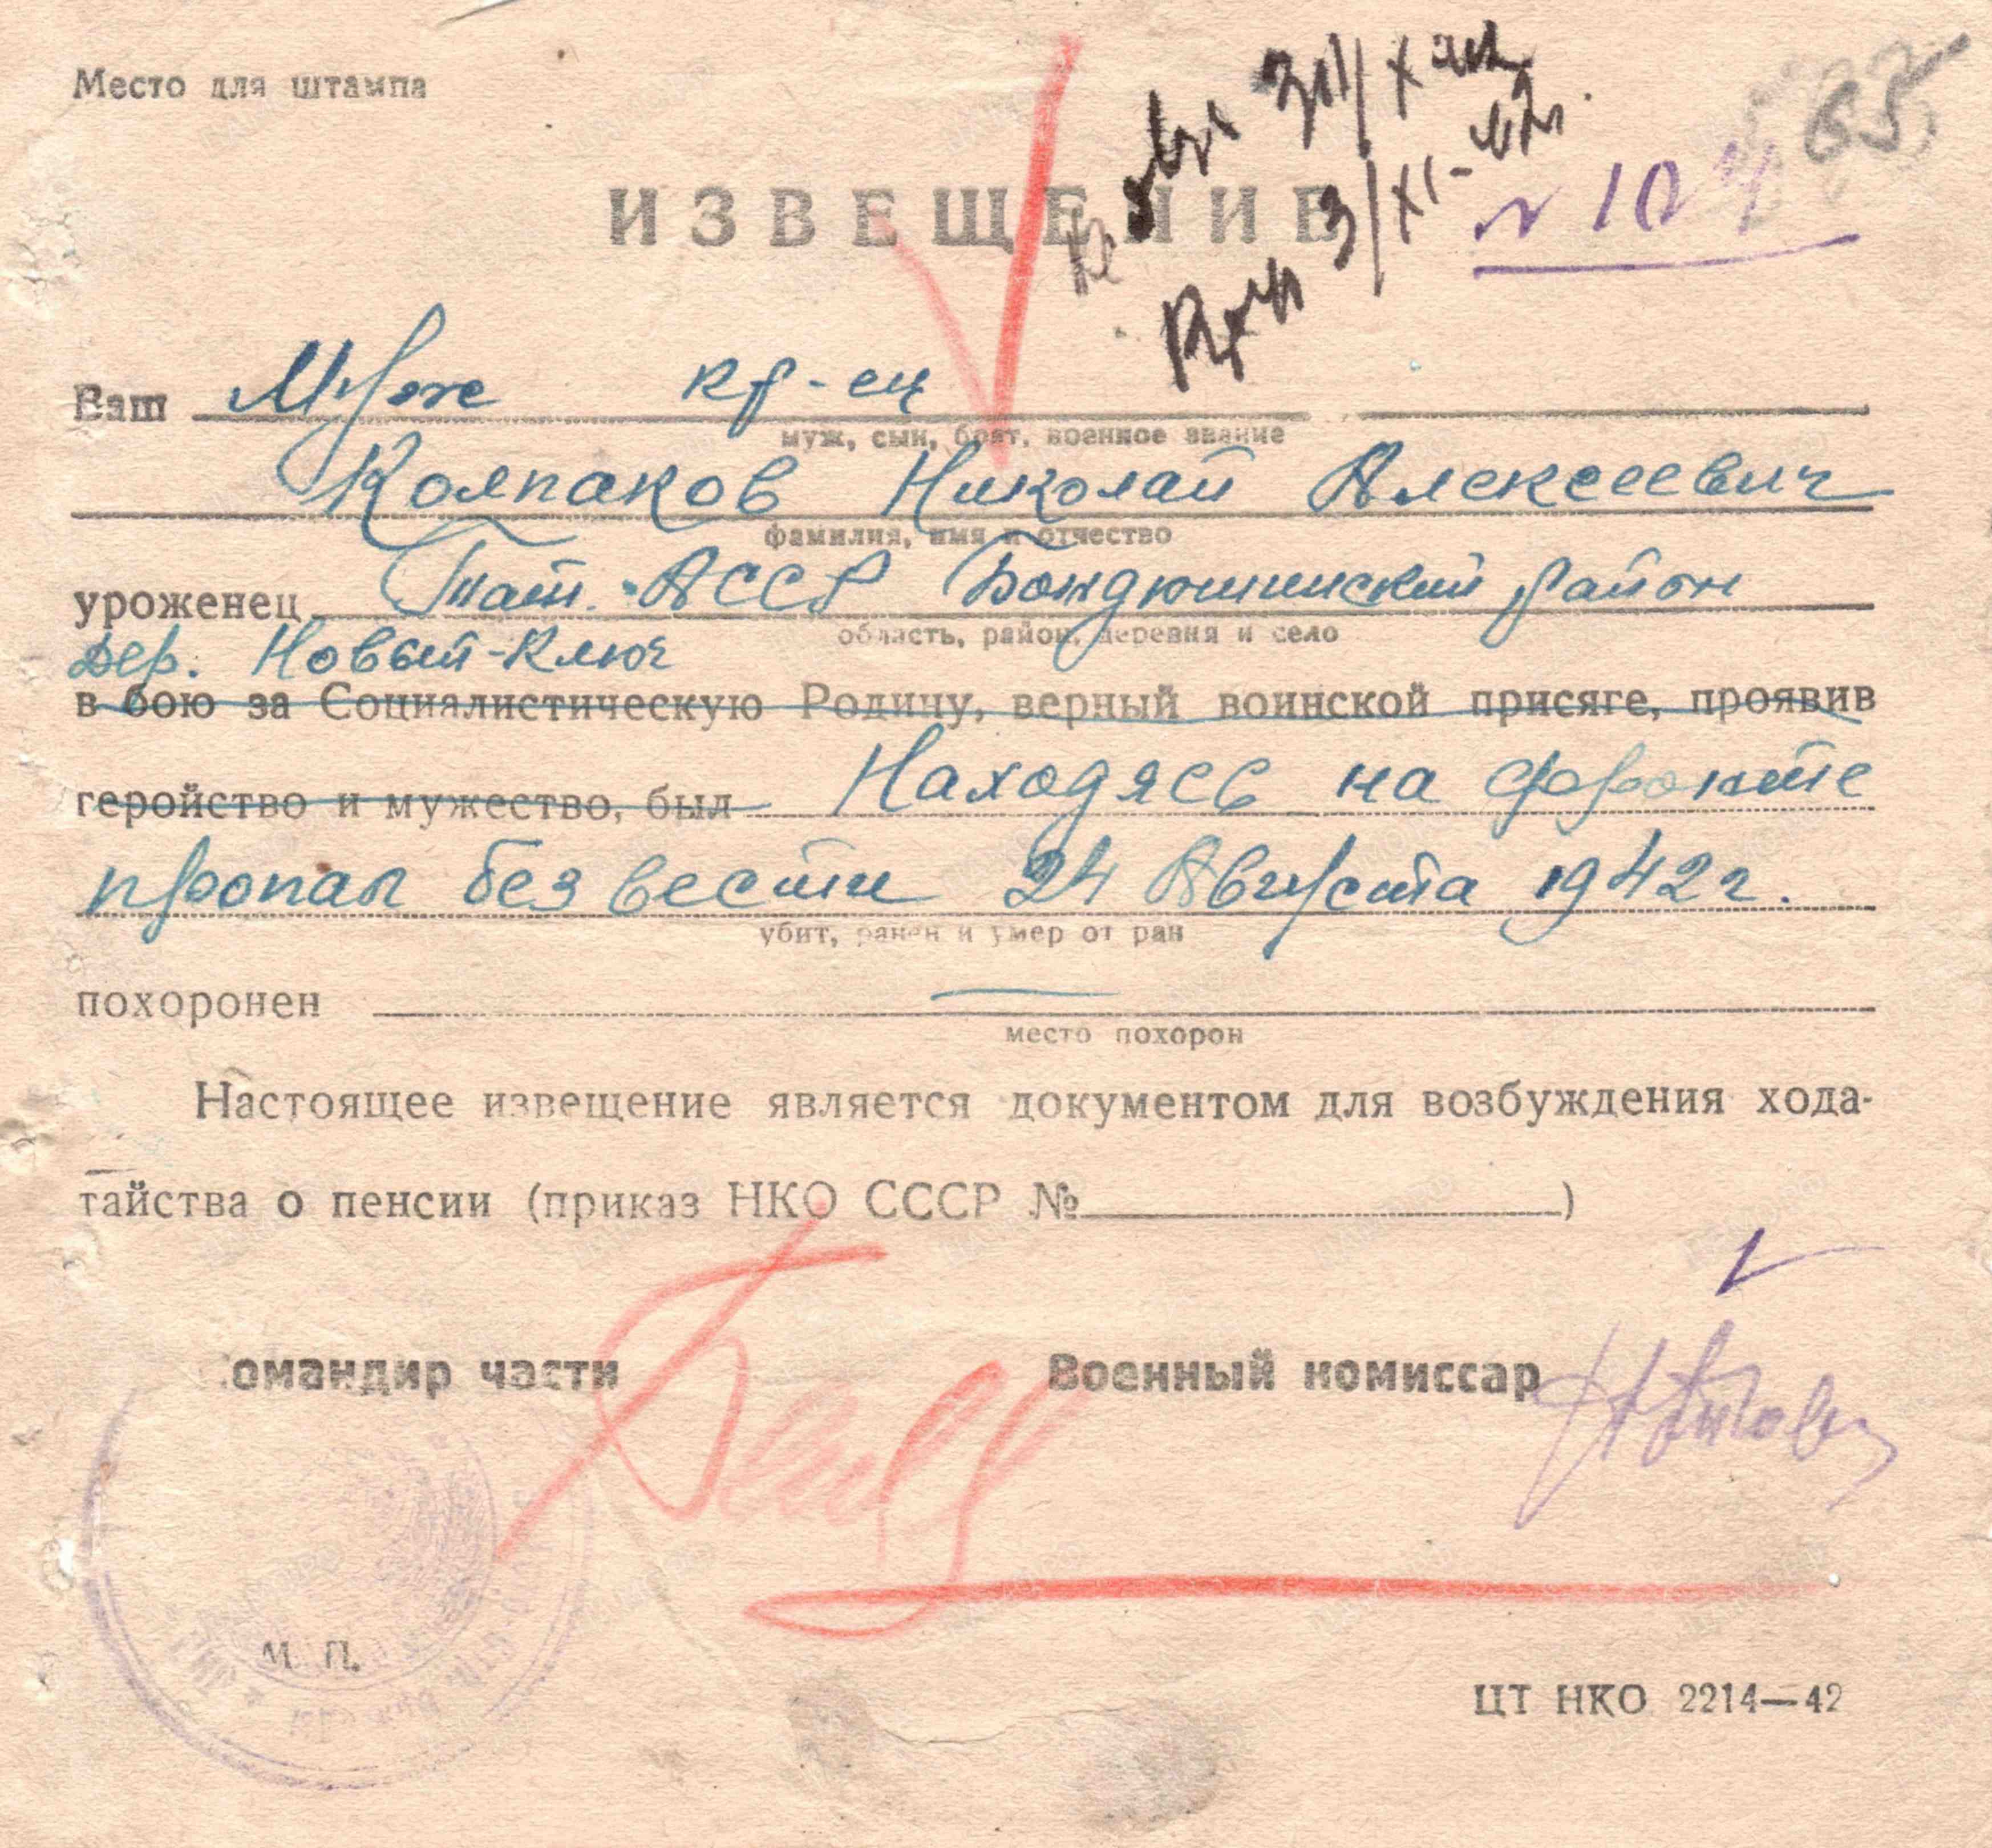 Место для штампа
65
ИЗВЕЩЕНИЕ
31/X 42
3/XI-42.
N 104
Ваш Муж кр-ец
муж, сын, брат, военное звание
Колпаков Николай Алексеевич
фамилия, имя и отчество
уроженец Тат. АССР Бондюшинский район
область, район, деревня и село
дер. Новый-Ключ
в бою за Социалистическую Родину, верный воинской присяге, проявив
геройство и мужество, был Находясь на фронте
пропал без вести 24 Августа 1942 г.
убит, ранен и умер от ран
похоронен —
место похорон
Настоящее извещение является документом для возбуждения хода-
тайства о пенсии (приказ НКО СССР № )
омандир части Военный комиссар
М. П.
ЦТ НКО 2214—42